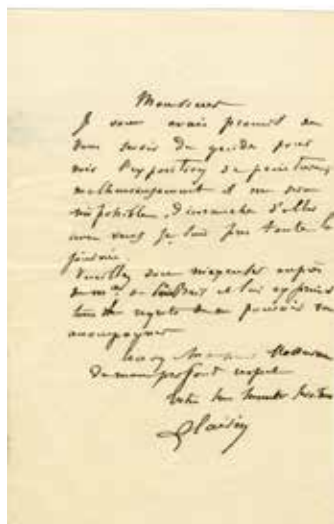 Monsieur
Je vous avais promis de
vous servir de guide pour
voir l'exposition de peinture,
malheureusement il me sera
impossible, dimanche d'aller
avec vous je suis pris toute la
journée.
Veuillez donc m'excuser auprès
de Mme de et lui exprimer
tous regrets de ne pouvoir vous
accompagner
Monsieur
de mon profond respect
votre
Clairin